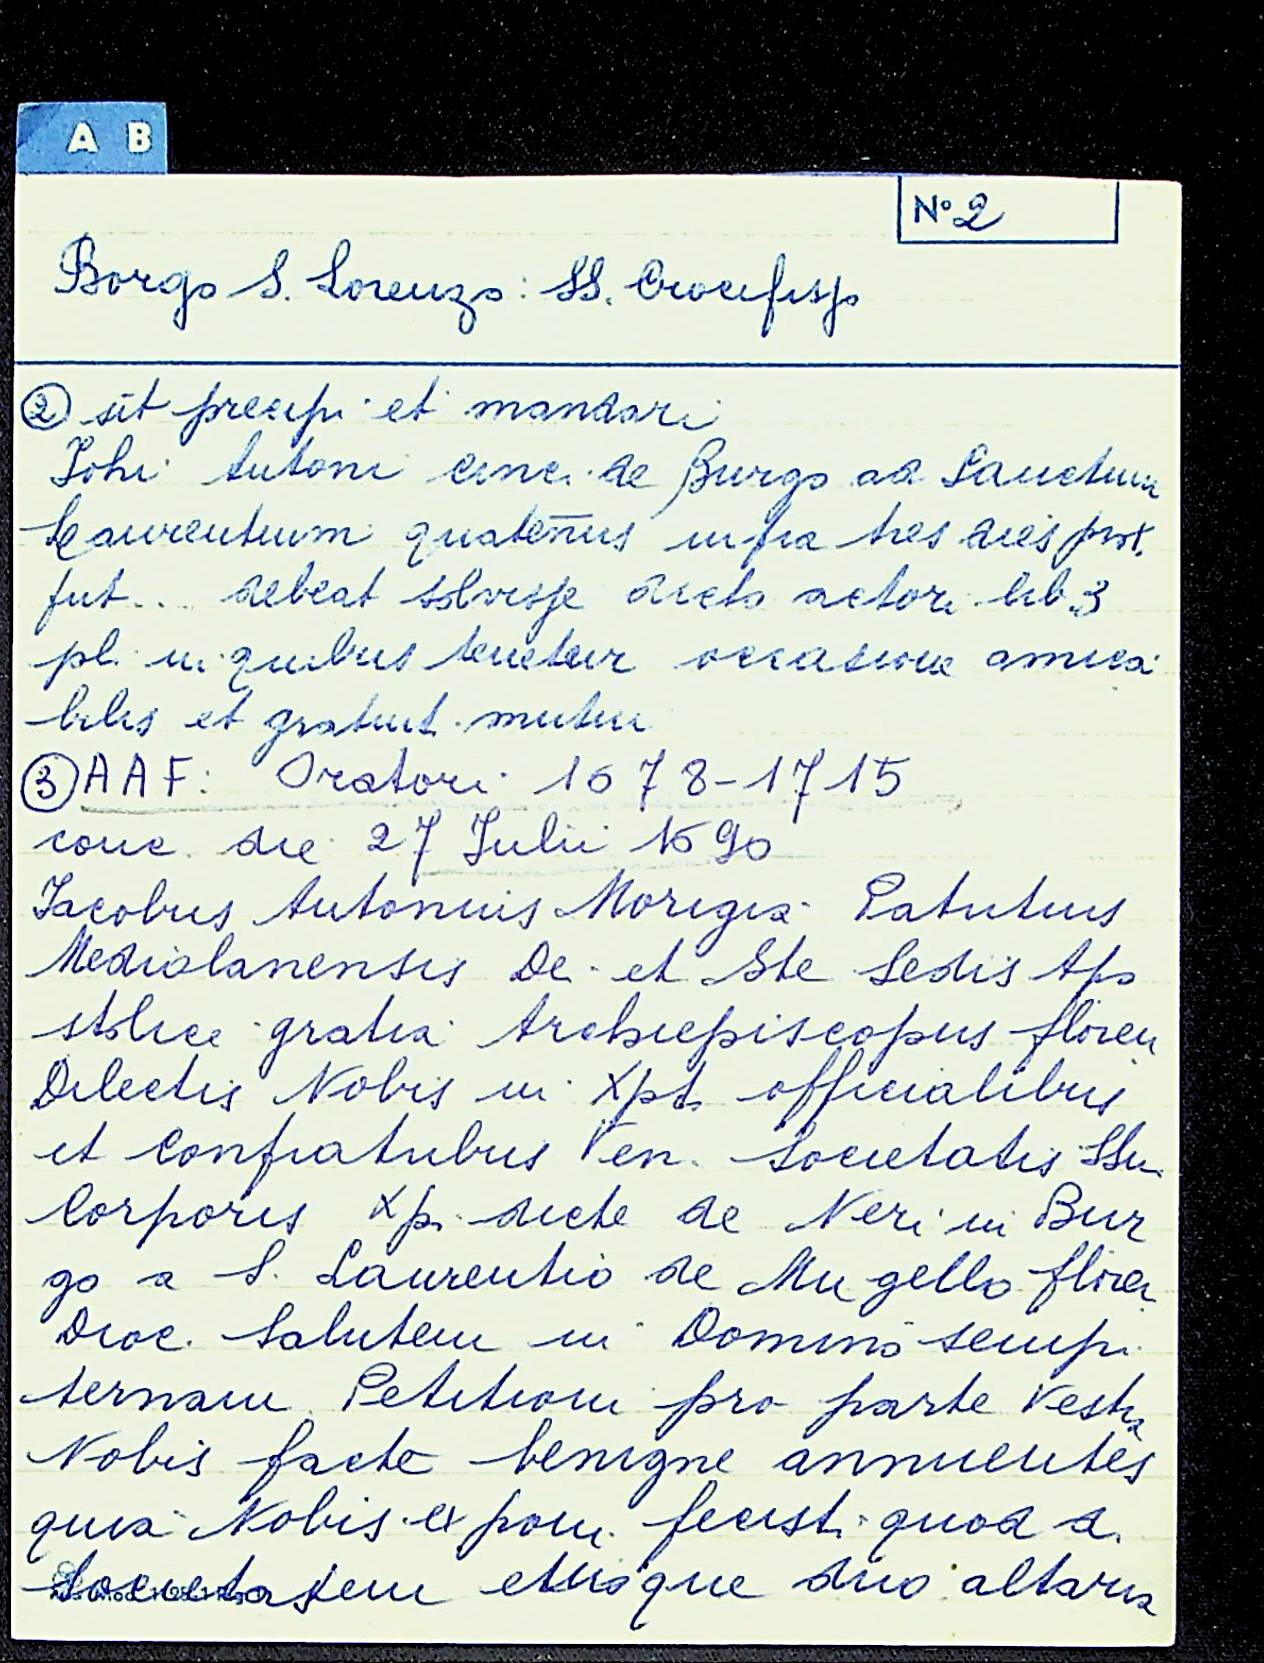 A B
N° 2
Borgo S. Lorenzo: SS. Crocifisso
② sit precipi et mandari
Iohi Antoni cinc. de Burgo ad Sanctum
Laurentium quatenus infra tres dies prox.
fut... debeat solvisse dicto actori lib. 3
pl. in quibus tenetur occasione amica
bilis et gratuit. mutui
③ AAF: Oratori 1678-1715
conc. die 27 Iulii 1690
Iacobus Antonius Morigia Patritius
Mediolanensis Dei et Ste Sedis Apo
stolice gratia Archiepiscopus floren
Dilectis Nobis in Xpt. officialibus
et Confratribus Ven. Societatis SSmi
Corporis Xp. dicte de Neri in Bur
go a S. Laurentio de Mugello floren
Dioc. Salutem in Domino sempi
ternam Petitioni pro parte Vestra
Nobis facte benigne annuentes
quia Nobis exponi fecist. quod d.
Societatem eiusque duo altaria